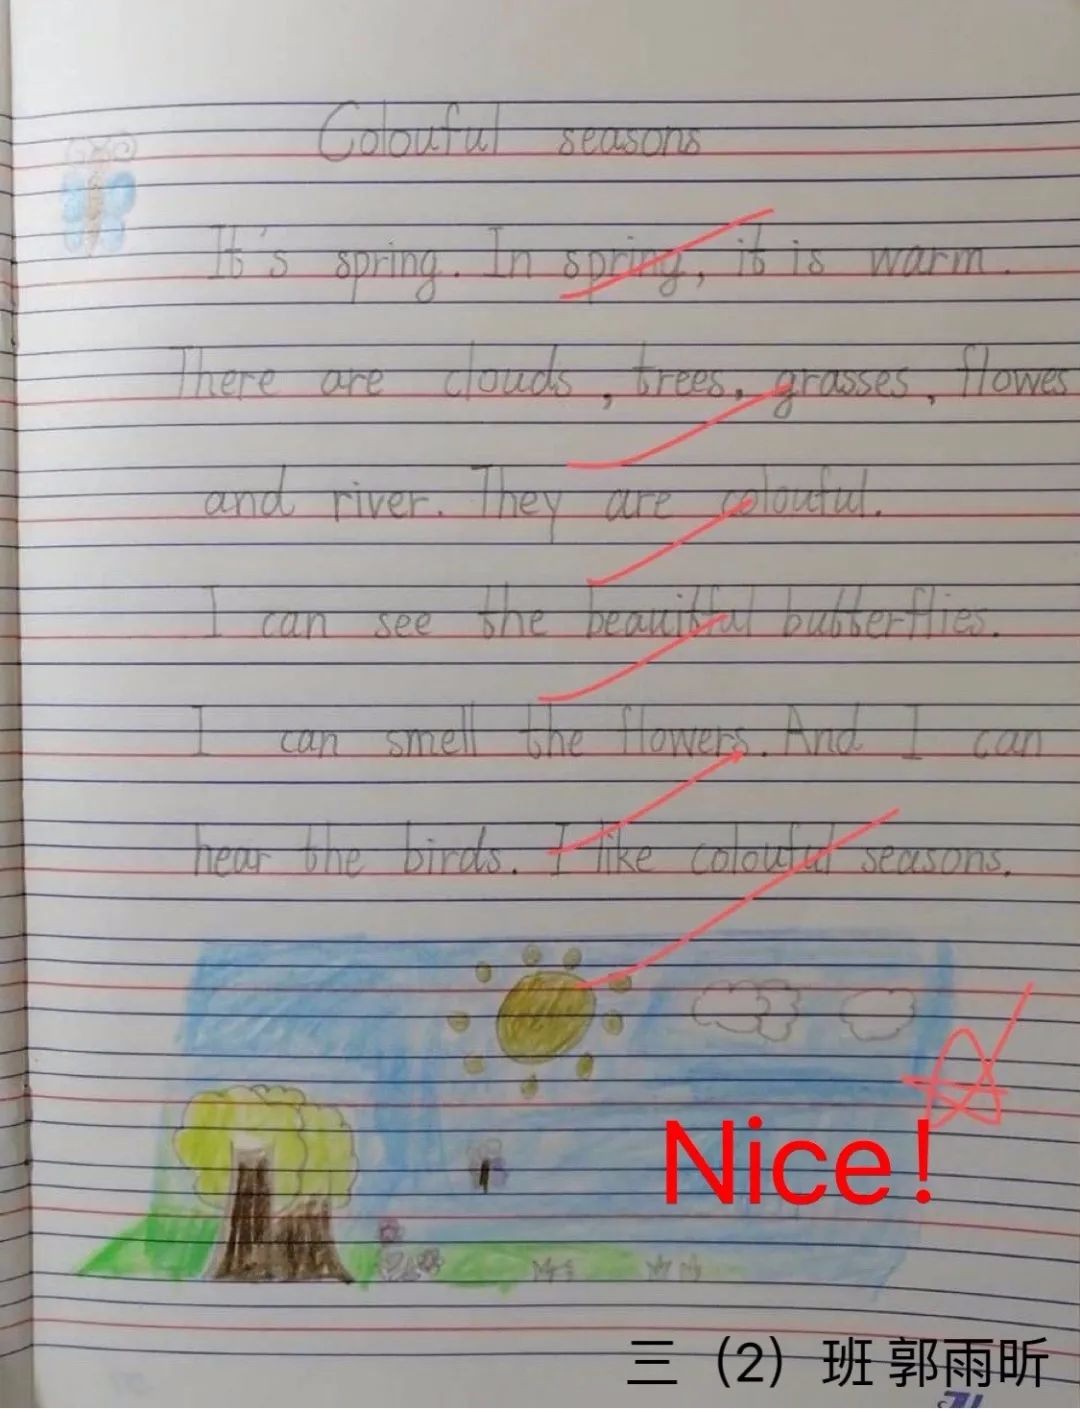 Colouful seasons
It's spring. In spring, it is warm.
There are clouds, trees, grasses, flowes
and river. They are colouful.
I can see the beauitful butterflies.
I can smell the flowers. And I can
hear the birds. I like colouful seasons.
Nice!
三（2）班 郭雨昕